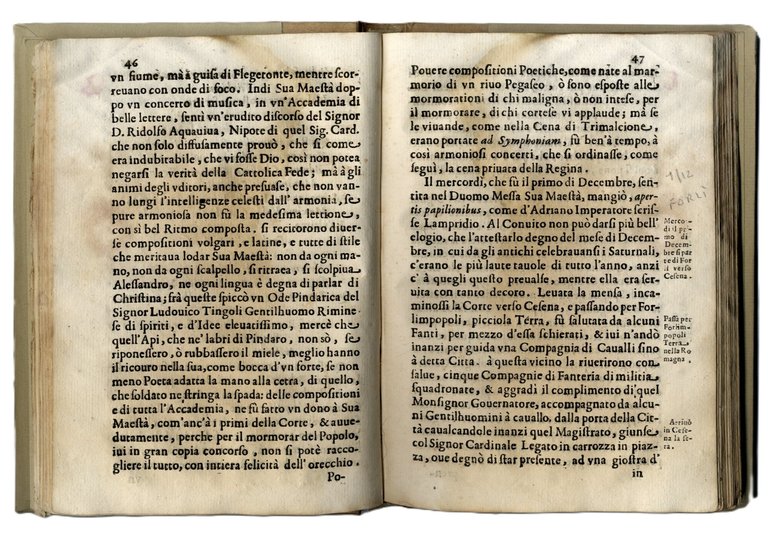 46
vn fiume, mà à guisa di Flegeronte, mentre scor-
reuano con onde di foco. Indi Sua Maestà dop-
po vn concerto di musica, in vn'Accademia di
belle lettere, sentì vn'erudito discorso del Signor
D. Ridolfo Aquauiua, Nipote di quel Sig. Card.
che non solo diffusamente prouò, che si come
era indubitabile, che vi fosse Dio, così non potea
negarsi la verità della Cattolica Fede; mà à gli
animi degli vditori, anche persuase, che non van-
no lungi l'intelligenze celesti dall'armonia, se
pure armoniosa non fù la medesima lettione,
con sì bel Ritmo composta. si recitorono diuer-
se compositioni volgari, e latine, e tutte di stile
che meritaua lodar Sua Maestà: non da ogni ma-
no, non da ogni scalpello, si ritraea, si scolpiua
Alessandro, ne ogni lingua è degna di parlar di
Christina; frà queste spiccò vn Ode Pindarica del
Signor Ludouico Tingoli Gentilhuomo Rimine-
se di spiriti, e d'Idee eleuatissimo, mercè che
quell'Api, che ne' labri di Pindaro, non sò, se
riponessero, ò rubbassero il miele, meglio hanno
il ricouro nella sua, come bocca d'vn forte, se non
meno Poeta adatta la mano alla cetra, di quello,
che soldato ne stringa la spada: delle compositioni
e di tutta l'Accademia, ne fù fatto vn dono à Sua
Maestà, com'anc'à i primi della Corte, & auue-
dutamente, perche per il mormorar del Popolo,
iui in gran copia concorso, non si potè racco-
gliere il tutto, con intiera felicità dell'orecchio.
Po-
47
Pouere compositioni Poetiche, come nate al mar-
morio di vn riuo Pegaseo, ò sono esposte alle
mormorationi di chi maligna, ò non intese, per
il mormorare, di chi cortese vi applaude; mà se
le viuande, come nella Cena di Trimalcione,
erano portate ad Symphoniam, fù ben'à tempo, à
così armoniosi concerti, che si ordinasse, come
seguì, la cena priuata della Regina.
Il mercordì, che fù il primo di Decembre, sen-
tita nel Duomo Messa Sua Maestà, mangiò, aper-
tis papilionibus, come d'Adriano Imperatore scris-
se Lampridio. Al Conuito non può darsi più bell'
elogio, che l'attestarlo degno del mese di Decem-
bre, in cui da gli antichi celebrauansi i Saturnali,
c'erano le più laute tauole di tutto l'anno, anzi
c'à quegli questo preualse, mentre ella era ser-
uita con tanto decoro. Leuata la mensa, inca-
minossi la Corte verso Cesena, e passando per For-
limpopoli, picciola Terra, fù salutata da alcuni
Fanti, per mezzo d'essa schierati, & iui n'andò
inanzi per guida vna Compagnia di Caualli sino
à detta Città. à questa vicino la riuerirono con
salue, cinque Compagnie di Fanteria di militia
squadronate, & aggradì il complimento di quel
Monsignor Gouernatore, accompagnato da alcu-
ni Gentilhuomini à cauallo. dalla porta della Cit-
tà caualcandole inanzi quel Magistrato, giunse
col Signor Cardinale Legato in carrozza in piaz-
za, oue degnò di star presente, ad vna giostra d'
in
1/12
FORLÌ
Merco-
dì il pri-
mo di
Decem-
bre si par
te di For
lì verso
Cesena.
Passa per
Forlim-
popoli
Terra
nella Ro
magna.
Arriuò
in Cese-
na la se-
ra.